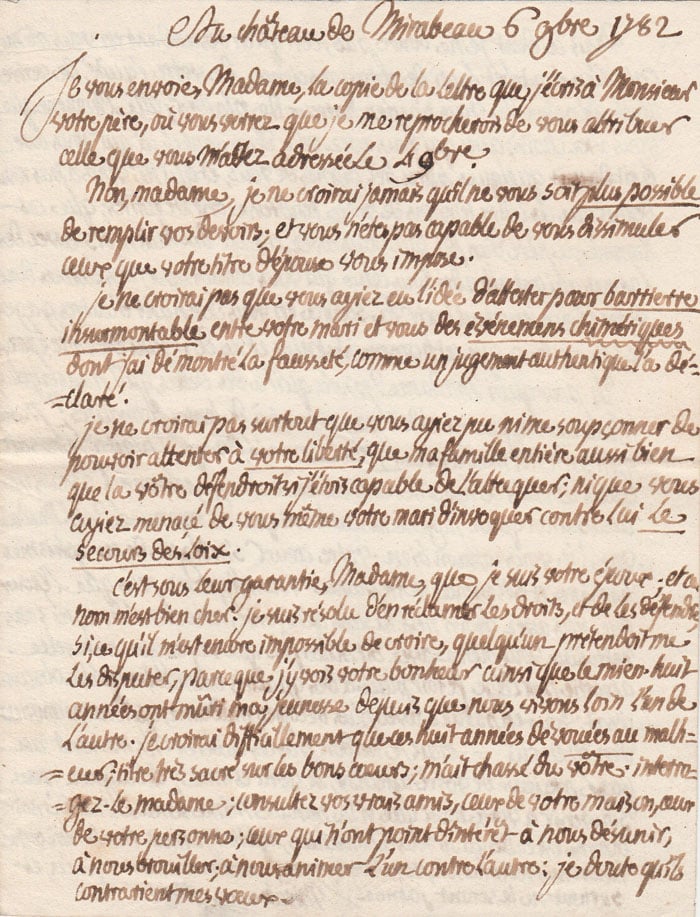 Au château de Mirabeau 6 9bre 1782
Je vous envoie, Madame, la copie de la lettre que j'écris à Monsieur
votre père, où vous verrez que je me reprocherois de vous attribuer
celle que vous m'avez adressée le 4 9bre.
Non, madame, je ne croirai jamais qu'il ne vous soit plus possible
de remplir vos devoirs, et vous n'êtes pas capable de vous dissimuler
ceux que votre titre d'épouse vous impose.
je ne croirai pas que vous ayiez eu l'idée d'attester pour barrierre
insurmontable entre votre mari et vous des événemens chimériques
dont j'ai démontré la fausseté, comme un jugement authentique l'a dé-
=claré.
je ne croirai pas surtout que vous ayiez pu me soupçonner de
pouvoir attenter à votre liberté, que ma famille entière aussi bien
que la vôtre défendroit si j'étois capable de l'attaquer; ni que vous
ayiez menacé de vous même votre mari d'invoquer contre lui le
secours des loix.
c'est sous leur garantie, Madame, que je suis votre époux. et ce
nom m'est bien cher. je suis résolu d'en réclamer les droits, et de les défendre
si, ce qu'il m'est encore impossible de croire, quelqu'un prétendoit me
les disputer, parceque j'y vois votre bonheur ainsi que le mien. huit
années ont mûri ma jeunesse depuis que nous vivons loin l'un de
l'autre. je croirai difficillement que ces huit années dévouées au malh-
=eur, titre très sacré sur les bons coeurs, m'ait chassé du vôtre. interro-
=gez-le madame; consultez vos vrais amis, ceux de votre maison, ceux
de votre personne; ceux qui n'ont point d'intérêt à nous désunir,
à nous brouiller, à nous animer l'un contre l'autre: je doute qu'ils
contrarient mes voeux.